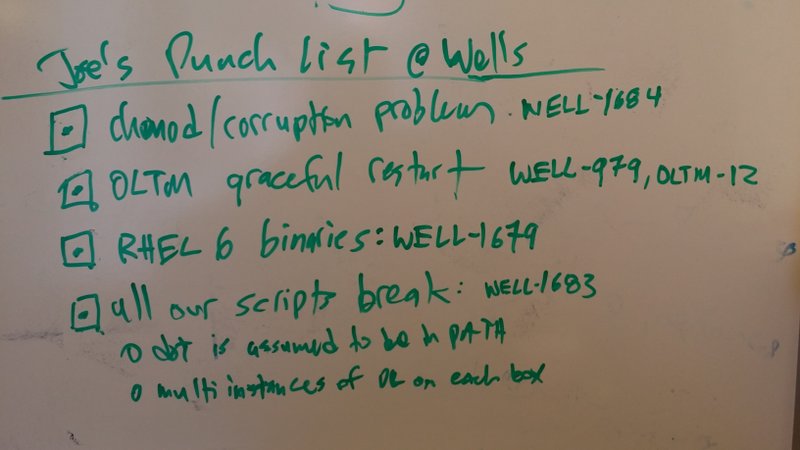 Jose's Punch list @ Wells
chmod/corruption problem. WELL-1684
OLTM graceful restart WELL-979, OLTM-12
RHEL 6 binaries: WELL-1679
all our scripts break: WELL-1683
dot is assumed to be in PATH
multi instances of DL on each box